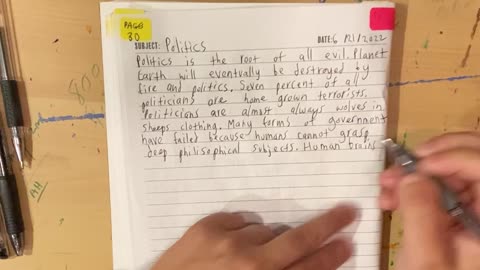 PAGE
30
SUBJECT: Politics DATE: 6/21/2022
Politics is the root of all evil. Planet
Earth will eventually be destroyed by
fire and politics. Seven percent of all
politicians are home grown terrorists.
Politicians are almost always wolves in
sheeps clothing. Many forms of government
have failed because humans cannot grasp
deep philisophical subjects. Human brains
800
AH